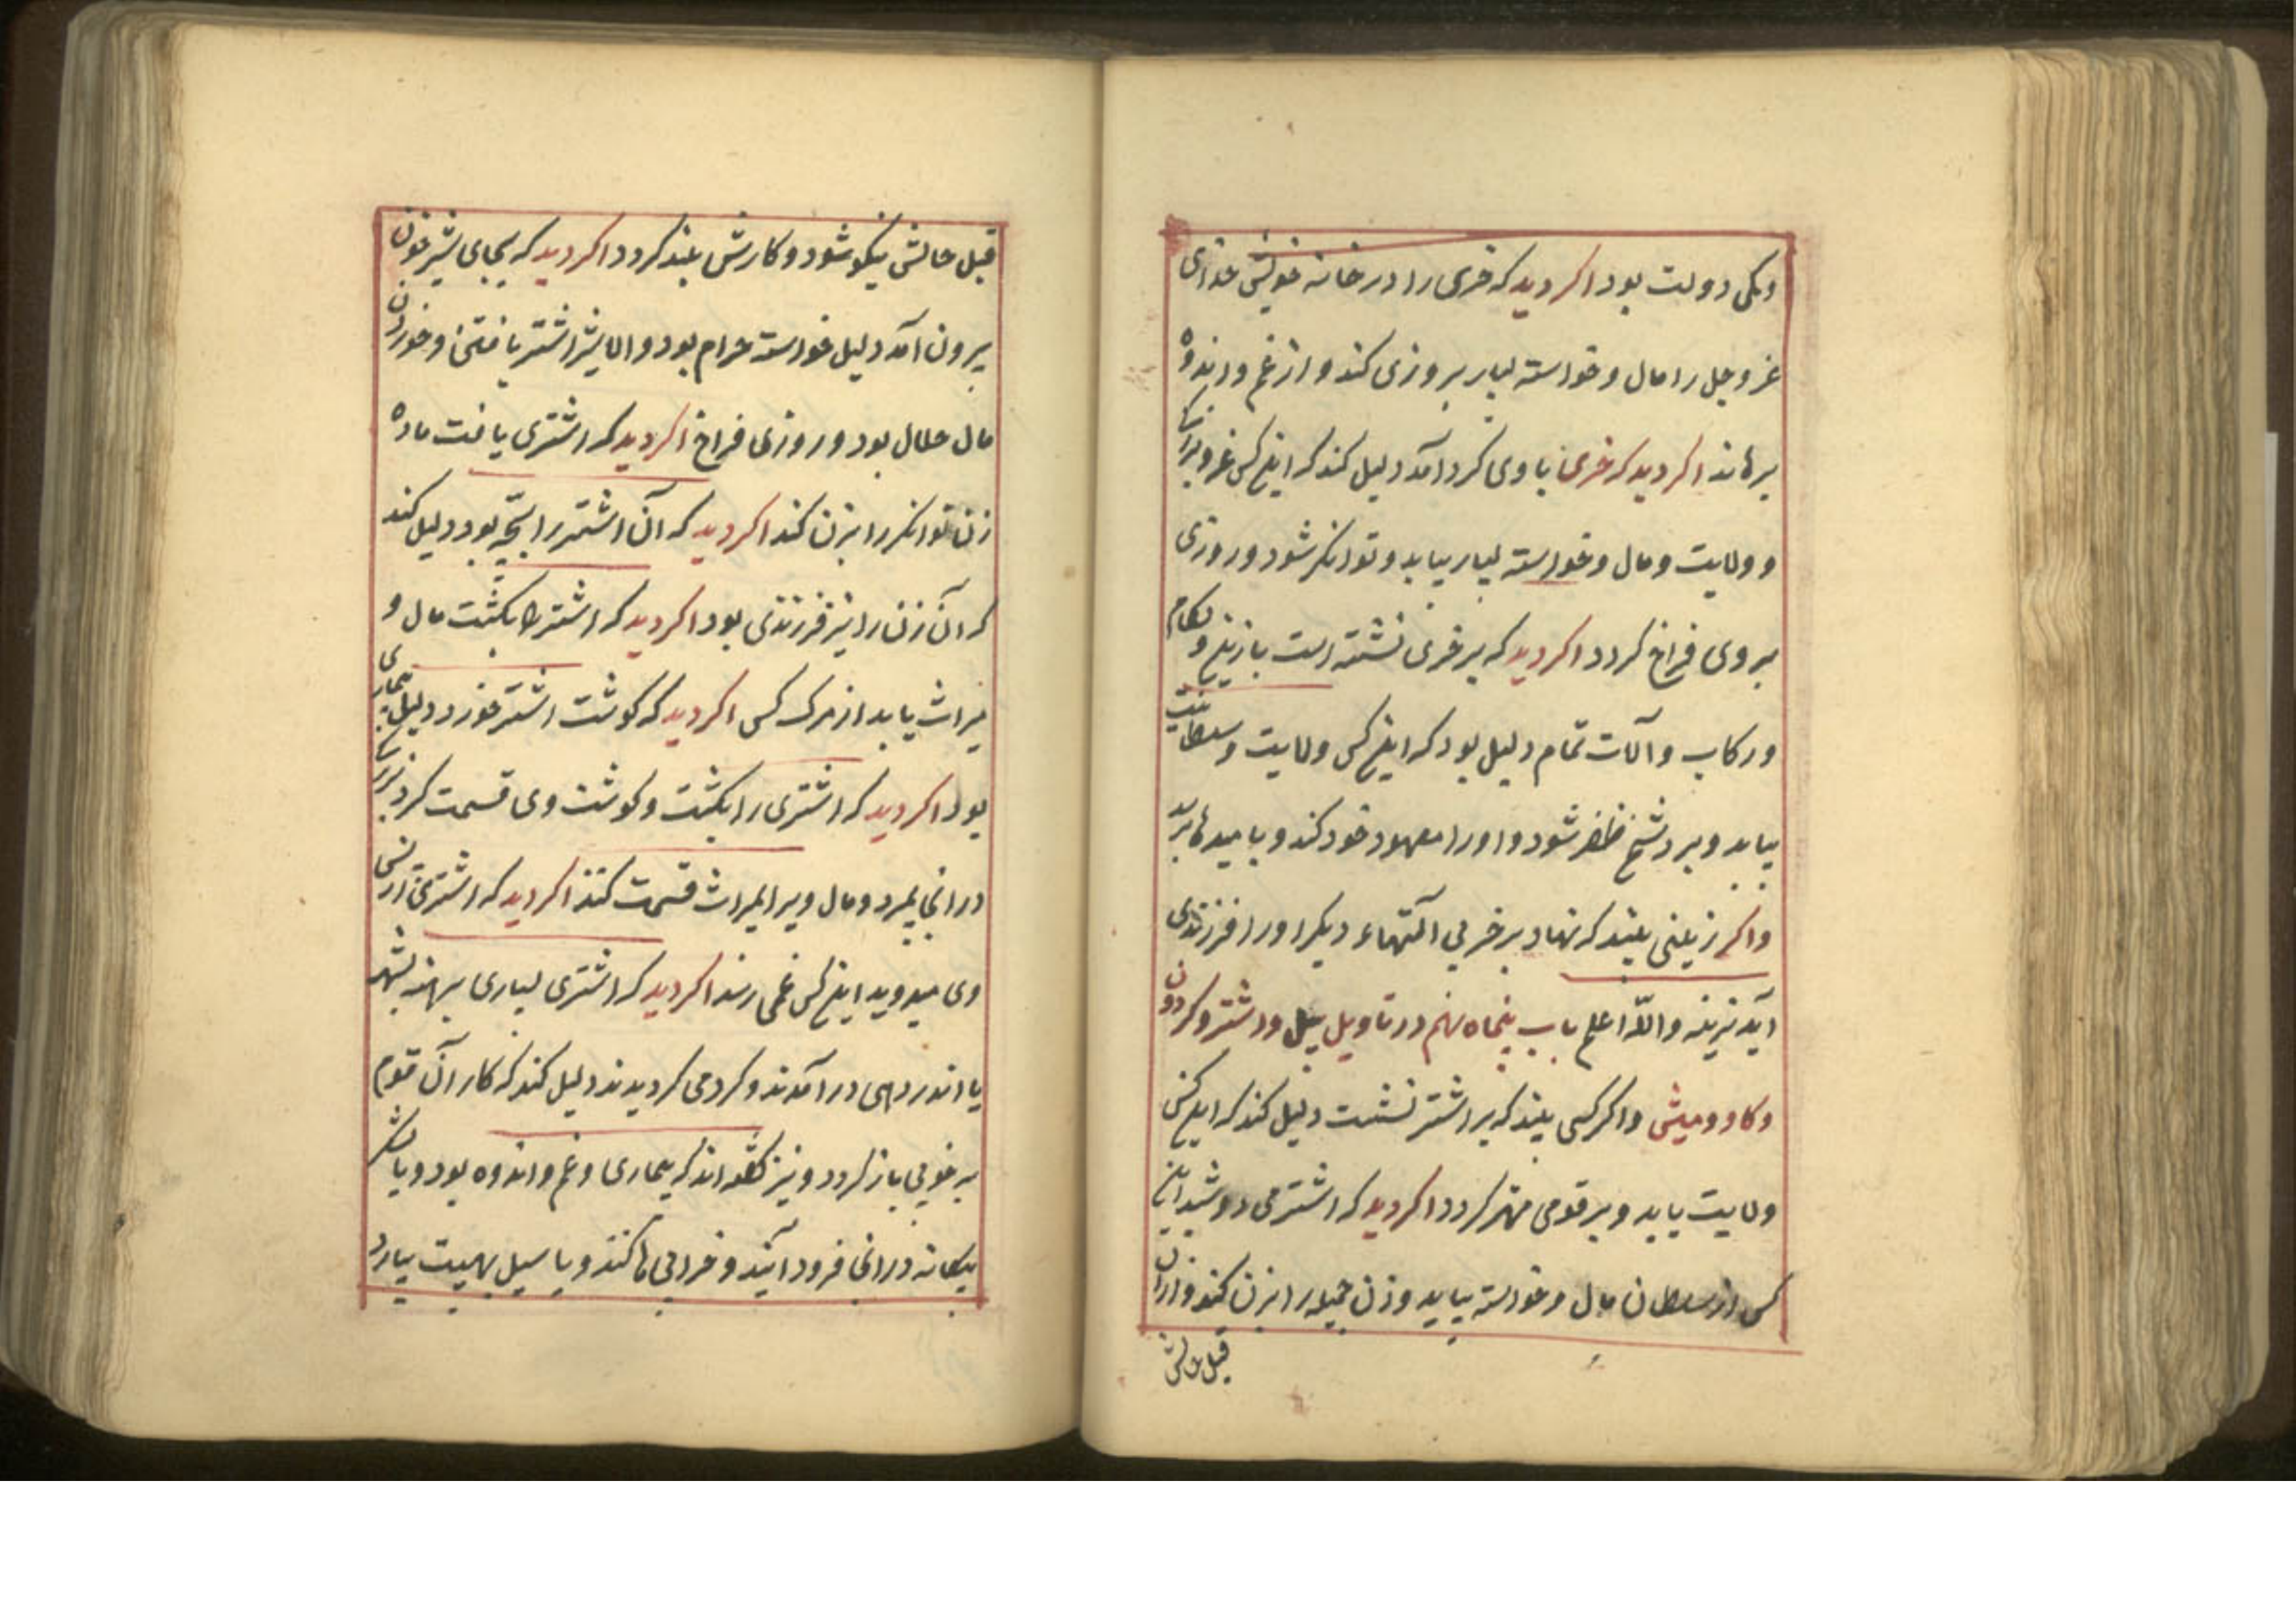 ونیکی دولت بود اکر دید که خری را در خانه خویش خدای
عز وجل را مال و خواسته بسیار بروزی کند و از غم و اندوه
برهاند اکر دید که خری با وی کرد آمد دلیل کند که اینکس عز و بزرکی
و ولایت و مال و خواسته بسیار بیابد و توانکر شود و روزی
بروی فراخ کردد اکر دید که بر خری نشسته است با زین و لکام
و رکاب و آلات تمام دلیل بود که اینکس ولایت و سلطانیت
بیابد و بر دشمن ظفر شود و او را خود کند و بامیدها برسد
واکر زینی بیند که نهاد بر خر بی آلتهاء دیکر او را فرزندی
آید نرینه والله اعلم باب پنجاه نهم در تاویل پیل و اشتر و کردون
و کاو و میش واکر کسی بیند که بر اشتر نشست دلیل کند که اینکس
ولایت یابد و بر قومی مهتر کردد اکر دید که اشتر می دوشید این
کس از سلطان مال و خواسته بیابد و زن جمیله را بزن کند و ازان
قبل حالش
قبل حالش نیکو شود و کارش بلند کردد اکر دید که بجای شیر خون
بیرون آمد دلیل خواسته حرام بود و اما شیر اشتر یافتن و خوردن
مال حلال بود و روزی فراخ اکر دید که اشتری یافت ماده
زن توانکر را بزن کند اکر دید که آن اشتر را بچه بود دلیل کند
که آن زن را نیز فرزندی بود اکر دید که اشتر را بکشت مال و
میراث یابد از مرک کسی اکر دید که کوشت اشتر خورد دلیل بیماری
بود اکر دید که اشتری را بکشت و کوشت وی قسمت کرد بزرکی
در آنجا بمرد و مال ویرا بمیراث قسمت کنند اکر دید که اشتری از پس
وی میدوید اینکس غمی رسد اکر دید که اشتری بسیاری برهنه بشهر
یا اندر دهی در آمدند و کرد می کردیدند دلیل کند که کار آن قوم
به خوبی باز کردد و نیز کفته اند که بیماری و غم و اندوه بود و یا لشکر
بیکانه در آنجا فرود آیند و خرابی ها کنند و یا سیل بهیبت بیارد